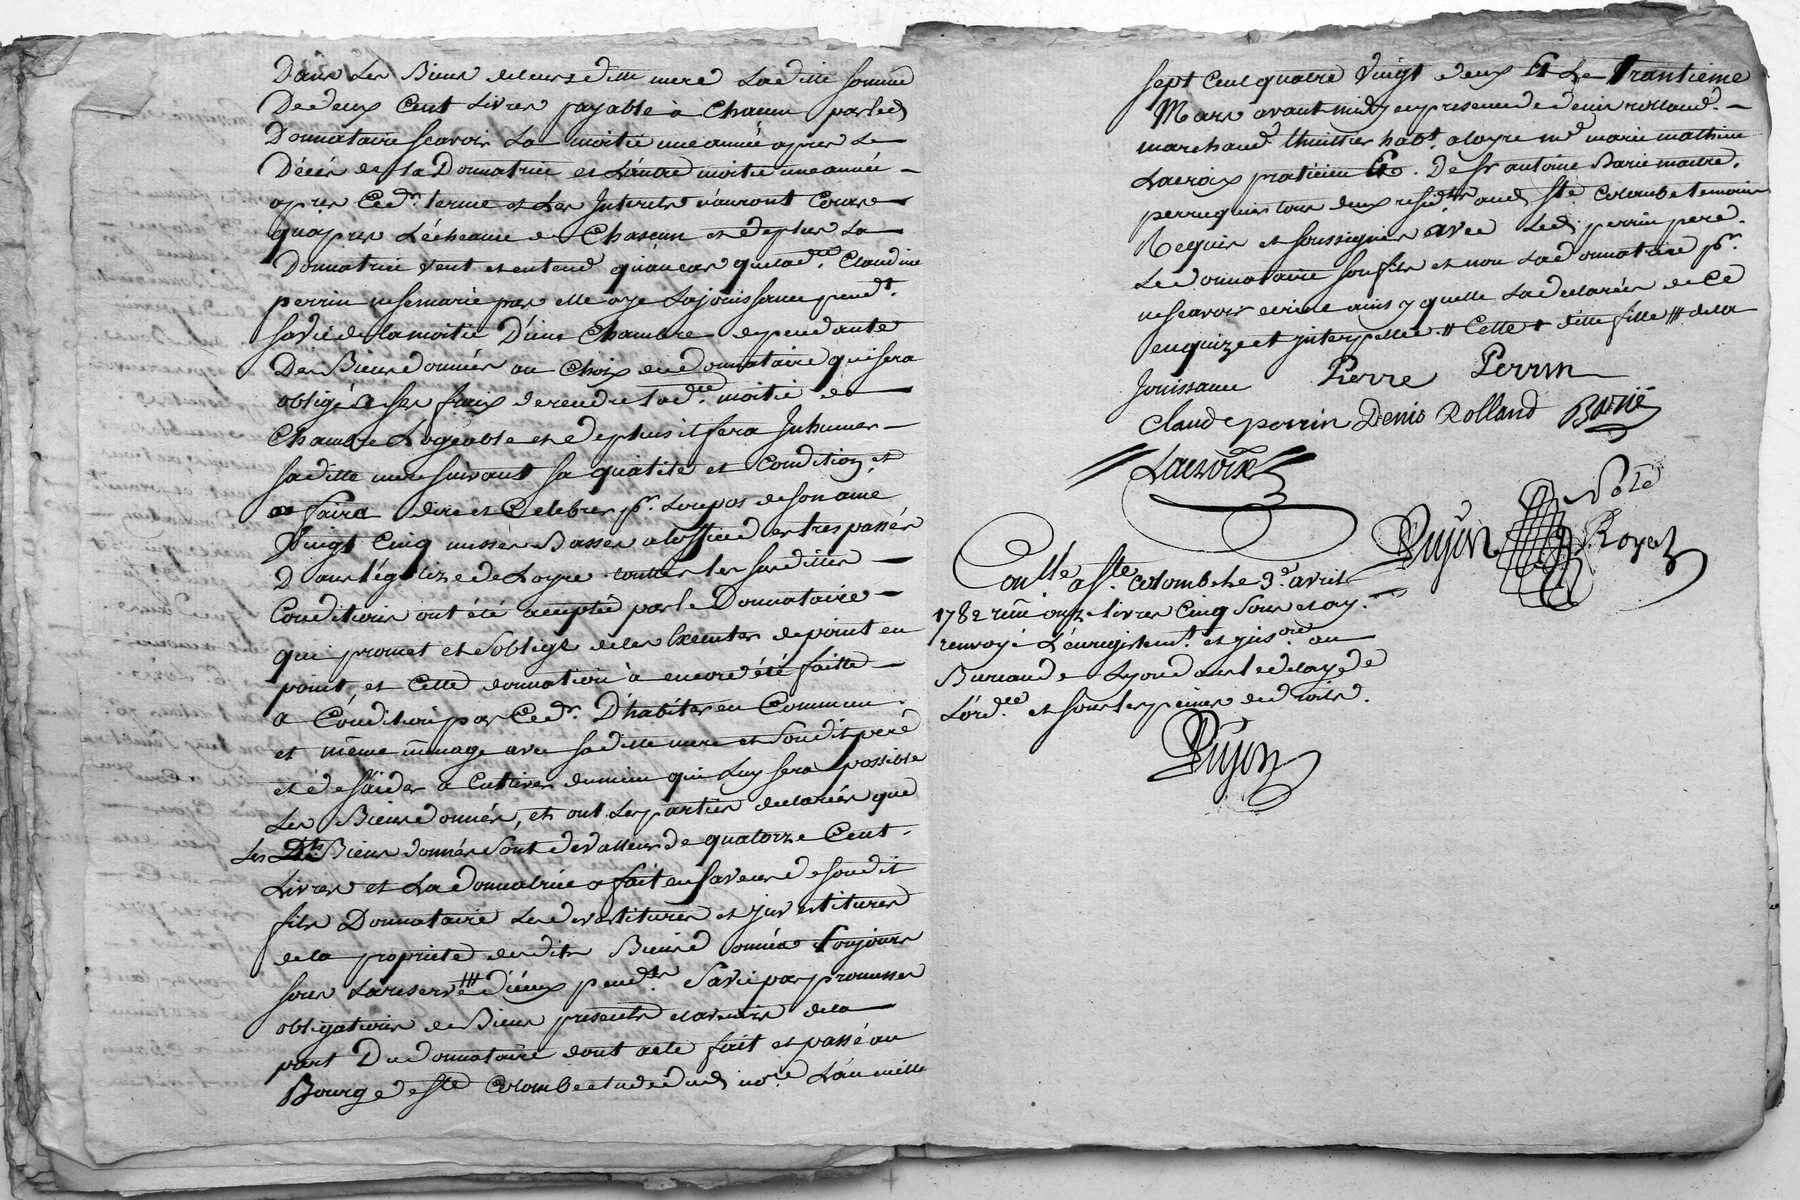 Dans les Biens de leurs ditte mere Laditte somme
De deux Cent Livres payable à Chacun par led
Donnataire scavoir La moitié une année apres Le
Décés de la Donnatrice et L'autre moitié une année
apres Ced.r terme et Les Interets n'auront Cours
qu'apres L'échéance de Chascun et de plus La
Donnatrice veut et entend qu'au cas que lad.e Claudine
perrin ne se marie pas elle aye La jouissance pend.t
sa vie de la moitié D'une Chambre dependante
Des Biens donnés au Choix du donnataire qui sera
obligé à ses fraix de rendre lad.e moitié de
Chambre Logeable et de plus il fera Inhumer
saditte mere suivant sa qualité et Condition, et
faira dire et Celebrer p.r Le repos de son ame
vingt Cinq messes Basses a l'office des trespassés
Dans l'églize de Loyre touttes les susdittes
Conditions ont été acceptée par le Donnataire
qui promet et s'oblige de les Executer de point en
point, et Cette donnation à encore été faitte
a Condition par Ced.r D'habiter en Commun
et même menage avec saditte mere et Sondit pere
et de s'aider a Cultiver du mieu qui Luy sera possible
Les Biens donnés, et ont Les parties declarées que
Les Biens donnés sont de valleur de quatorze Cent
Livres et La donnatrice a fait en faveur de sondit
fils Donnataire Les devestitures et Investitures
de la proprieté desdits Biens donnés toujours
sous La reserve /// d'iceux pend.t Sa vie par promesses
obligations de Biens presents et avenir de la
part Du donnataire dont acte fait et passé au
Bourg de Ste Colombe etude dud no.re L'an mille
sept Cent quatre vingt deux Et Le trantieme
Mars avant midy en presence de denis rolland
marchand thuillier hab.t a Loyre m.e marie mathieu
Lacroix praticien Et De S.r antoine Barie maitre
perruquier tous deux resid.ts aud Ste Colombe temoins
Requis et soussignés avec Led perrin pere
Le donnataire son fils et non La donnatrice p.r
ne scavoir ecrire ainsy quelle La declarée de Ce
enquize et interpellée # Cette # ditte fille /// de la
Jouissance Pierre Perrin
Claude perrin Denis Rolland Barié
Lacroix
Pujon Note Royal
Con.lle a Ste Colombe Le 3.e avril
1782 reçu onze livres Cinq Sous et ay
renvoyé L'enregistrem.t et insi.on au
Bureau de Lyon dans le delay de
L'ord.ce et sous les peines de droits
Pujon